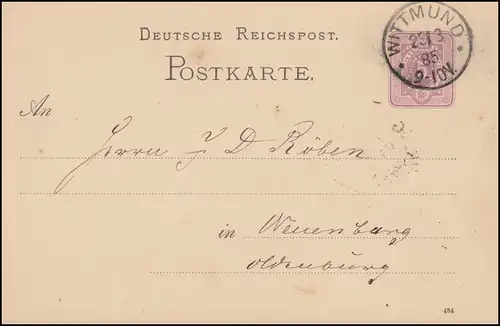 DEUTSCHE REICHSPOST.
POSTKARTE.
WITTMUND
3
85
9-10V.
An
Herrn J D Röben
in Neuenburg
Oldenburg
484